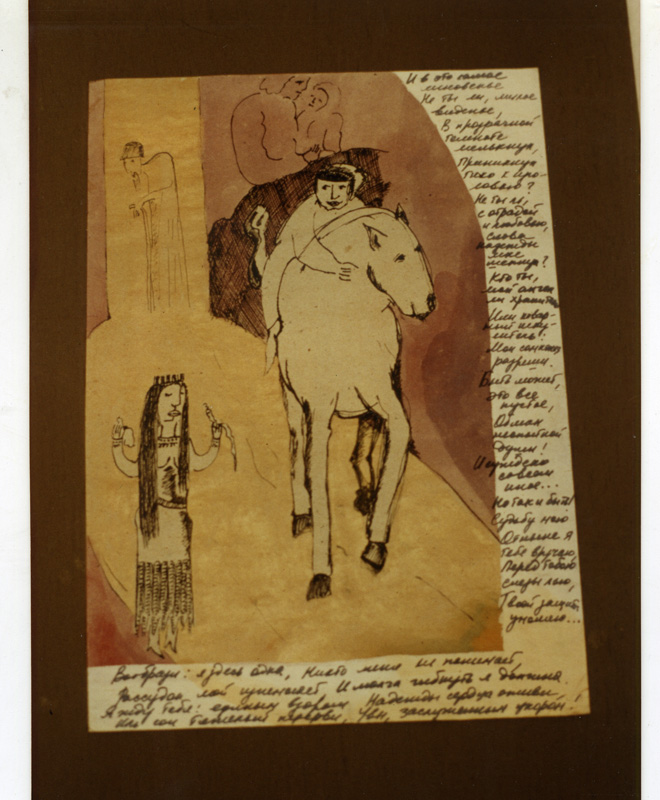 И в это самое
мгновенье
Не ты ли, милое
виденье,
В прозрачной
темноте
мелькнул,
Приникнул
тихо к изго-
ловью?
Не ты ль,
с отрадой
и любовью,
слова
надежды
мне
шепнул?
Кто ты,
мой ангел
ли хранитель
Или ковар-
ный иску-
ситель:
Мои сомненья
разреши.
Быть может,
это все
пустое,
Обман
неопытной
души!
И суждено
совсем
иное...
Но так и быть!
Судьбу мою
Отныне я
тебе вручаю,
Перед тобою
слезы лью,
Твоей защиты
умоляю...
Вообрази: я здесь одна, Никто меня не понимает,
Рассудок мой изнемогает, И молча гибнуть я должна.
Я жду тебя: единым взором Надежды сердца оживи,
Иль сон тяжелый перерви, Увы, заслуженным укором!